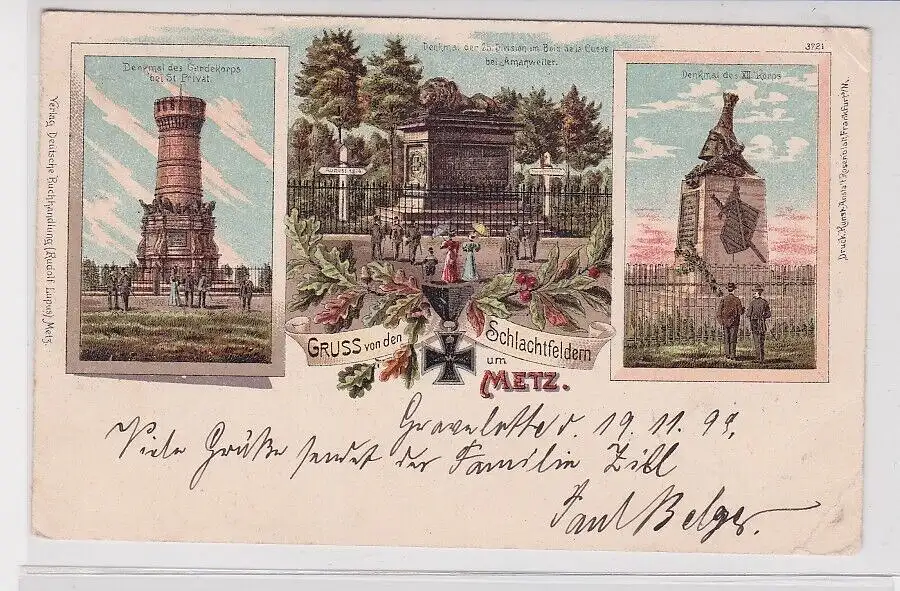 Denkmal des Gardekorps
bei St Privat
Denkmal der 25. Division im Bois de la Cusse
bei Amanweiler.
3721
Denkmal des XII Korps
Verlag Deutsche Buchhandlung (Rudolf Lupus) Metz.
Druck Kunst-Anstalt Rosenblatt Frankfurt a/M.
GRUSS von den Schlachtfeldern
um
METZ.
Gravelotte d. 19.11.99.
Viele Grüße sendet der Familie Zibl
Paul Belger.